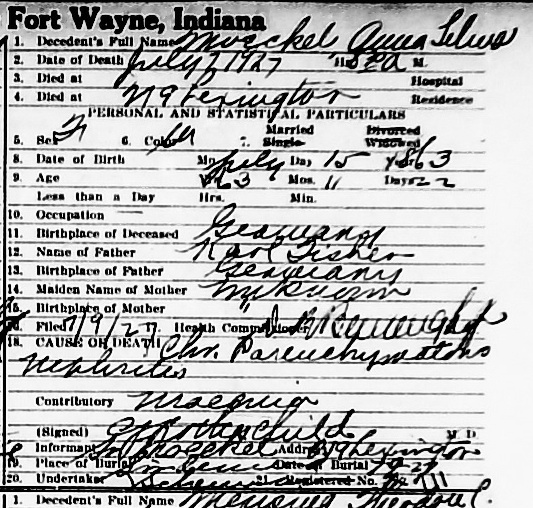 Fort Wayne, Indiana
1. Decedent's Full Name Moeckel Anna Selma
2. Date of Death July 7, 1927 Hr. M.
3. Died at Hospital
4. Died at Lexington Residence
PERSONAL AND STATISTICAL PARTICULARS
5. Sex F 6. Color W 7. Married Single Divorced Widowed
8. Date of Birth Mo. July Day 15 Yr. 63
9. Age 63 Mos. 11 Days 22
Less than a Day Hrs. Min.
10. Occupation
11. Birthplace of Deceased Germany
12. Name of Father Karl Fisher
13. Birthplace of Father Germany
14. Maiden Name of Mother Unknown
15. Birthplace of Mother "
Filed 7/9/27 Health Commissioner
18. CAUSE OF DEATH Chr. Parenchymatous
Nephritis
Contributory Uraemia
(Signed) Rothschild M D
Informant Moeckel Address Lexington
19. Place of Burial Date of Burial
20. Undertaker 21. Registered No.
1. Decedent's Full Name Theodore C.